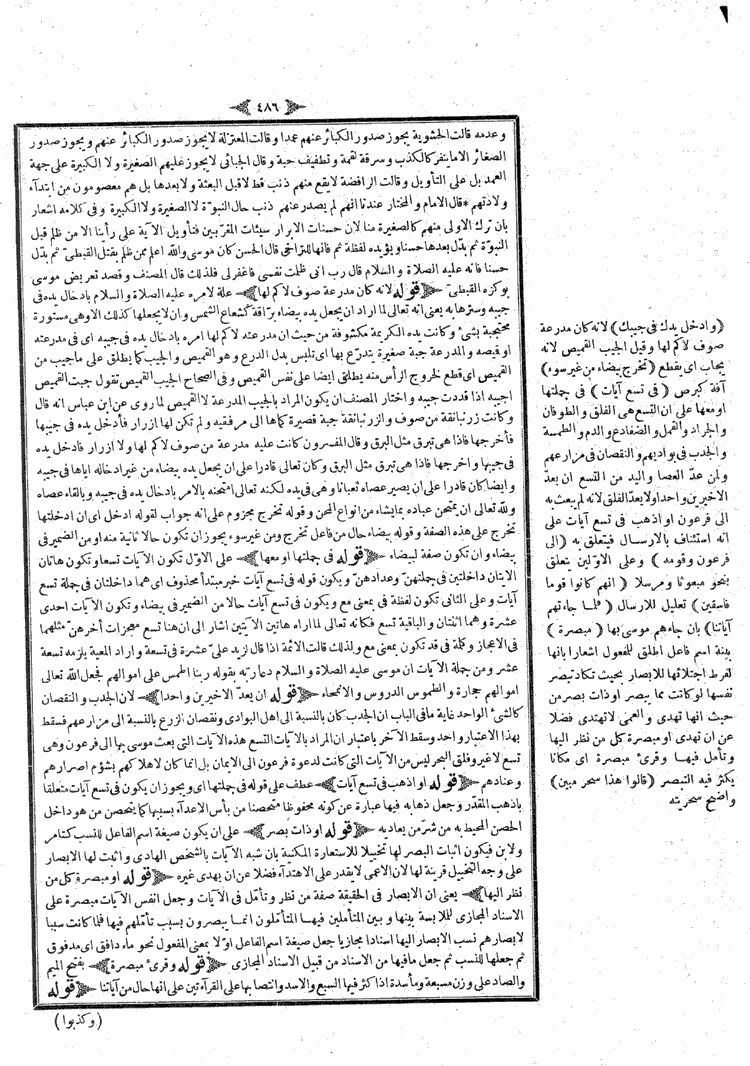 ﴿ ٤٨٦ ﴾
وعدمه قالت الحشوية يجوز صدور الكبائر عنهم عمدا وقالت المعتزلة لا يجوز صدور الكبائر عنهم ويجوز صدور
الصغائر الا ما ينفر كالكذب وسرقة لقمة وتطفيف حبة وقال الجبائى لا يجوز عليهم الصغيرة ولا الكبيرة على جهة
العمد بل على التأويل وقالت الرافضة لا يقع منهم ذنب قط لا قبل البعثة ولا بعدها بل هم معصومون من ابتدآء
ولادتهم * قال الامام والمختار عندنا انهم لم يصدر عنهم ذنب حال النبوّة لا الصغيرة ولا الكبيرة وفى كلامه اشعار
بان ترك الاولى منهم كالصغيرة منا لان حسنات الابرار سيئات المقرّبين فتأويل الآية على رأينا الا من ظلم قبل
النبوّة ثم بدّل بعدها حسنا ويؤيده لفظة ثم فانها للتراخى قال الحسن كان موسى والله اعلم ممن ظلم بقتل القبطىّ ثم بدّل
حسنا فانه عليه الصلاة و السلام قال رب انى ظلمت نفسى فاغفرلى فلذلك قال المصنف وقصد تعريض موسى
بوكزه القبطىّ ﴿ قوله لانه كان مدرعة صوف لا كم لها ﴾ علة لامره عليه الصلاة والسلام بادخال يده فى
جيبه وسترها به يعنى انه تعالى لما اراد ان يجعل يده بيضاء براقة كشعاع الشمس وان لا يجعلها كذلك الا وهى مستورة
محتجبة بشئ وكانت يده الكريمة مكشوفة من حيث ان مدرعته لا كم لها امره بادخال يده فى جيبه اى فى مدرعته
او قميصه والمدرعة جبة صغيرة يتدرّع بها اى تلبس بدل الدرع وهو القميص والجيب كما يطلق على ماجيب من
القميص اى قطع لخروج الرأس منه يطلق ايضا على نفس القميص وفى الصحاح الجيب القميص تقول جبت القميص
اجيبه اذا قددت جيبه واختار المصنف ان يكون المراد بالجيب المدرعة لا القميص لما روى عن ابن عباس انه قال
وكانت زرنبانقة من صوف والزرنبانقة جبة قصيرة كماها الى مرفقيه ولم تكن لها ازرار فأدخل يده فى جيبها
فأخرجها فاذا هى تبرق مثل البرق وقال المفسرون كانت عليه مدرعة من صوف لا كم لها ولا ازرار فادخل يده
فى جيبها واخرجها فاذا هى تبرق مثل البرق وكان تعالى قادرا على ان يجعل يده بيضاء من غير ادخاله اياها فى جيبه
وايضا كان قادرا على ان يصير عصاه ثعبانا وهى فى يده لكنه تعالى امتحنه بالامر بادخال يده فى جيبه وبالقاء عصاه
ولله تعالى ان يمتحن عباده بما يشاء من انواع المحن وقوله تخرج مجزوم على انه جواب لقوله ادخل اى ان ادخلتها
تخرج على هذه الصفة وقوله بيضاء حال من فاعل تخرج ومن غير سوء يجوز ان تكون حالا ثانية منه او من الضمير فى
بيضاء وان تكون صفة لبيضاء ﴿ قوله فى جملتها او معها ﴾ على الاوّل تكون الآيات تسعا وتكون هاتان
الايتان داخلتين فى جملتهنّ وعدادهنّ ويكون قوله فى تسع آيات خبر مبتدأ محذوف اى هما داخلتان فى جملة تسع
آيات وعلى الثانى تكون لفظة فى بمعنى مع ويكون فى تسع آيات حالا من الضمير فى بيضاء وتكون الآيات احدى
عشرة وهما اثنتان والباقية تسع فكأنه تعالى لما اراه هاتين الآيتين اشار الى ان هنا تسع معجزات أخر هنّ مثلهما
فى الاعجاز وكلمة فى قد تكون بمعنى مع ولذلك قالت الائمة اذا قال لزيد علىّ عشرة فى تسعة و اراد المعية يلزمه تسعة
عشر ومن جملة الآيات ان موسى عليه الصلاة والسلام دعا ربه بقوله ربنا اطمس على اموالهم فجعل الله تعالى
اموالهم حجارة و الطموس الدروس والانمحاء ﴿ قوله ان يعدّ الاخيرين واحدا ﴾ لان الجدب والنقصان
كالشئ الواحد غاية ما فى الباب ان الجدب كان بالنسبة الى اهل البوادى ونقصان الزرع بالنسبة الى مزارعهم فسقط
بهذا الاعتبار واحد وسقط الآخر باعتبار ان المراد بالآيات التسع هذه الآيات التى بعث موسى بها الى فرعون وهى
تسع لا غير وفلق البحر ليس من الآيات التى كانت لدعوة فرعون الى الايمان بل انما كان لاهلاكهم بشؤم اصرارهم
وعنادهم ﴿ قوله او اذهب فى تسع آيات ﴾ عطف على قوله فى جملتها اى ويجوز ان يكون فى تسع آيات متعلقا
باذهب المقدّر وجعل ذهابه فيها عبارة عن كونه محفوظا متحصنا من بأس الاعدآء بسببها كما يتحصن من هو داخل
الحصن المحيط به من شرّ من يعاديه ﴿ قوله او ذات بصر ﴾ على ان يكون صيغة اسم الفاعل للنسب كتامر
ولابن فيكون اثبات البصر لها تخييلا للاستعارة المكنية بان شبه الآيات بالشخص الهادى واثبت لها الابصار
على وجه التخييل قرينة لها لان الاعمى لا يقدر على الاهتدآء فضلا عن ان يهدى غيره ﴿ قوله او مبصرة كل من
نظر اليها ﴾ يعنى ان الابصار فى الحقيقة صفة من نظر وتأمّل فى الآيات وجعل انفس الآيات مبصرة على
الاسناد المجازى للملابسة بينها و بين المتأملين فيها المتأملون انما يبصرون بسبب تأمّلهم فيها فلما كانت سببا
لابصارهم نسب الابصار اليها اسنادا مجازيا جعل صيغة اسم الفاعل اوّلا بمعنى المفعول نحو ماء دافق اى مدفوق
ثم جعلها للنسب ثم جعل مافيها من الاسناد من قبيل الاسناد المجازى ﴿ قوله وقرئ مبصرة ﴾ بفتح الميم
والصاد على وزن مسبعة ومأسدة اذا كثر فيها السبع والاسد وانتصابها على القرآءتين على انها حال من آياتنا ﴿ قوله
(وكذبوا)
(وادخل يدك فى جيبك) لانه كان مدرعة
صوف لا كم لها وقيل الجيب القميص لانه
يجاب اى يقطع (تخرج بيضاء من غير سوء)
آفة كبرص (فى تسع آيات) فى جملتها
او معها على ان التسع هى الفلق والطوفان
والجراد والقمل والضفادع والدم والطمسة
والجدب فى بواديهم والنقصان فى مزارعهم
ولمن عدّ العصا واليد من التسع ان يعدّ
الاخيرين واحدا ولا يعدّ الفلق لانه لم يبعث به
الى فرعون او اذهب فى تسع آيات على
انه استئناف بالارسال فيتعلق به (الى
فرعون وقومه) وعلى الاوّلين يتعلق
بنحو مبعوثا ومرسلا (انهم كانوا قوما
فاسقين) تعليل للارسال (فلما جاءتهم
آياتنا) بان جاءهم موسى بها (مبصرة)
بينة اسم فاعل اطلق للمفعول اشعارا بانها
لفرط اجتلائها للابصار بحيث تكاد تبصر
نفسها لو كانت مما يبصر او ذات بصر من
حيث انها تهدى والعمى لا تهتدى فضلا
عن ان تهدى او مبصرة كل من نظر اليها
وتأمل فيها وقرئ مبصرة اى مكانا
يكثر فيه التبصر (قالوا هذا سحر مبين)
واضح سحريته